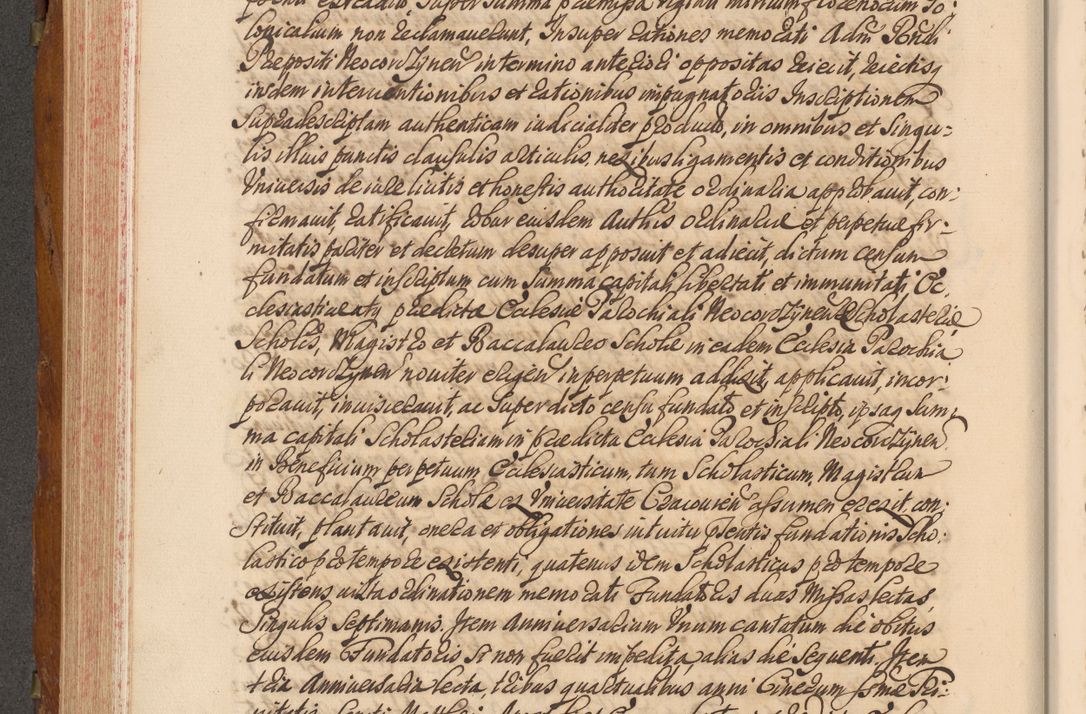 lonicalium non reclamaverunt, Insuper rationes memorati Adm Rndi
Præpositi Neocorczynen in termino anteriori oppositas reiecit, reiectisq
insdem interventionibus et rationibus impugnatoriis Inscriptionem
Supradescriptam authenticam iudicialiter productam, in omnibus et singu-
lis illius punctis clausulis articulis, nexibus ligamentis et conditionibus
Universis de iure licitis et honestis authoritate ordinaria approbavit, con-
firmavit, ratificavit, robur eiusdem Authis ordinariæ et perpetuæ fir-
mitatis pariter et decretum desuper apposuit et adiecit, dictum censum
fundatum et inscriptum cum Summa capitali libertati et immunitati Ec-
clesiasticæ atq prædictæ Ecclesiæ Parochiali Neocorczynen Scholasteriæ
Scholæ, Magistro et Baccalaureo Scholæ in eadem Ecclesia Parochia
li Neocorczynen noviter erigen in perpetuum addixit, applicavit, incor-
poravit, invisceravit, ac super dicto censu fundato et inscripto, ipsaq Sum-
ma capitali Scholasteriam in prædicta Ecclesia Parochiali Neocorczynen
in Beneficium perpetuum Ecclesiasticum, tum Scholasticum, Magistrum
et Baccalaureum Scholæ ex Universitate Cracovien assumen erexit, con-
stituit, plantavit, onera et obligationes intuitu præsentis fundationis Scho-
lastico pro tempore existenti, quatenus idem Scholasticus pro tempore
existens iuxta ordinationem memorati Fundatoris duas Missas lectas,
Singulis Septimanis. Item Anniversarium Unum cantatum die obitus
eiusdem Fundatoris si non fuerit impedita alias die sequenti. Item
tria Anniversaria lecta, tribus quartualibus anni Cinerum ssmæ Tri-